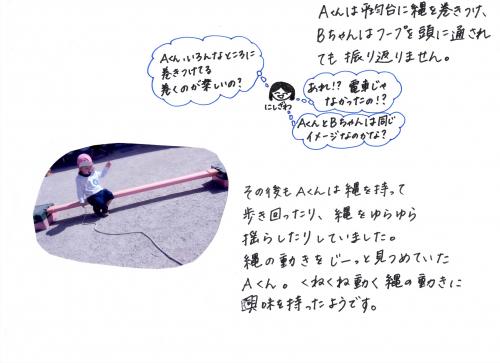 Aくんは平均台に縄を巻きつけ、
Bちゃんはフープを頭に通され
ても振り返りません。
Aくん、いろんなところに
巻きつけてる
巻くのが楽しいの?
にしざわ
あれ!? 電車じゃ
なかったの!?
AくんとBちゃんは同じ
イメージなのかな?
その後もAくんは縄を持って
歩き回ったり、縄をゆらゆら
揺らしたりしていました。
縄の動きをじーっと見つめていた
Aくん。くねくね動く縄の動きに
興味を持ったようです。